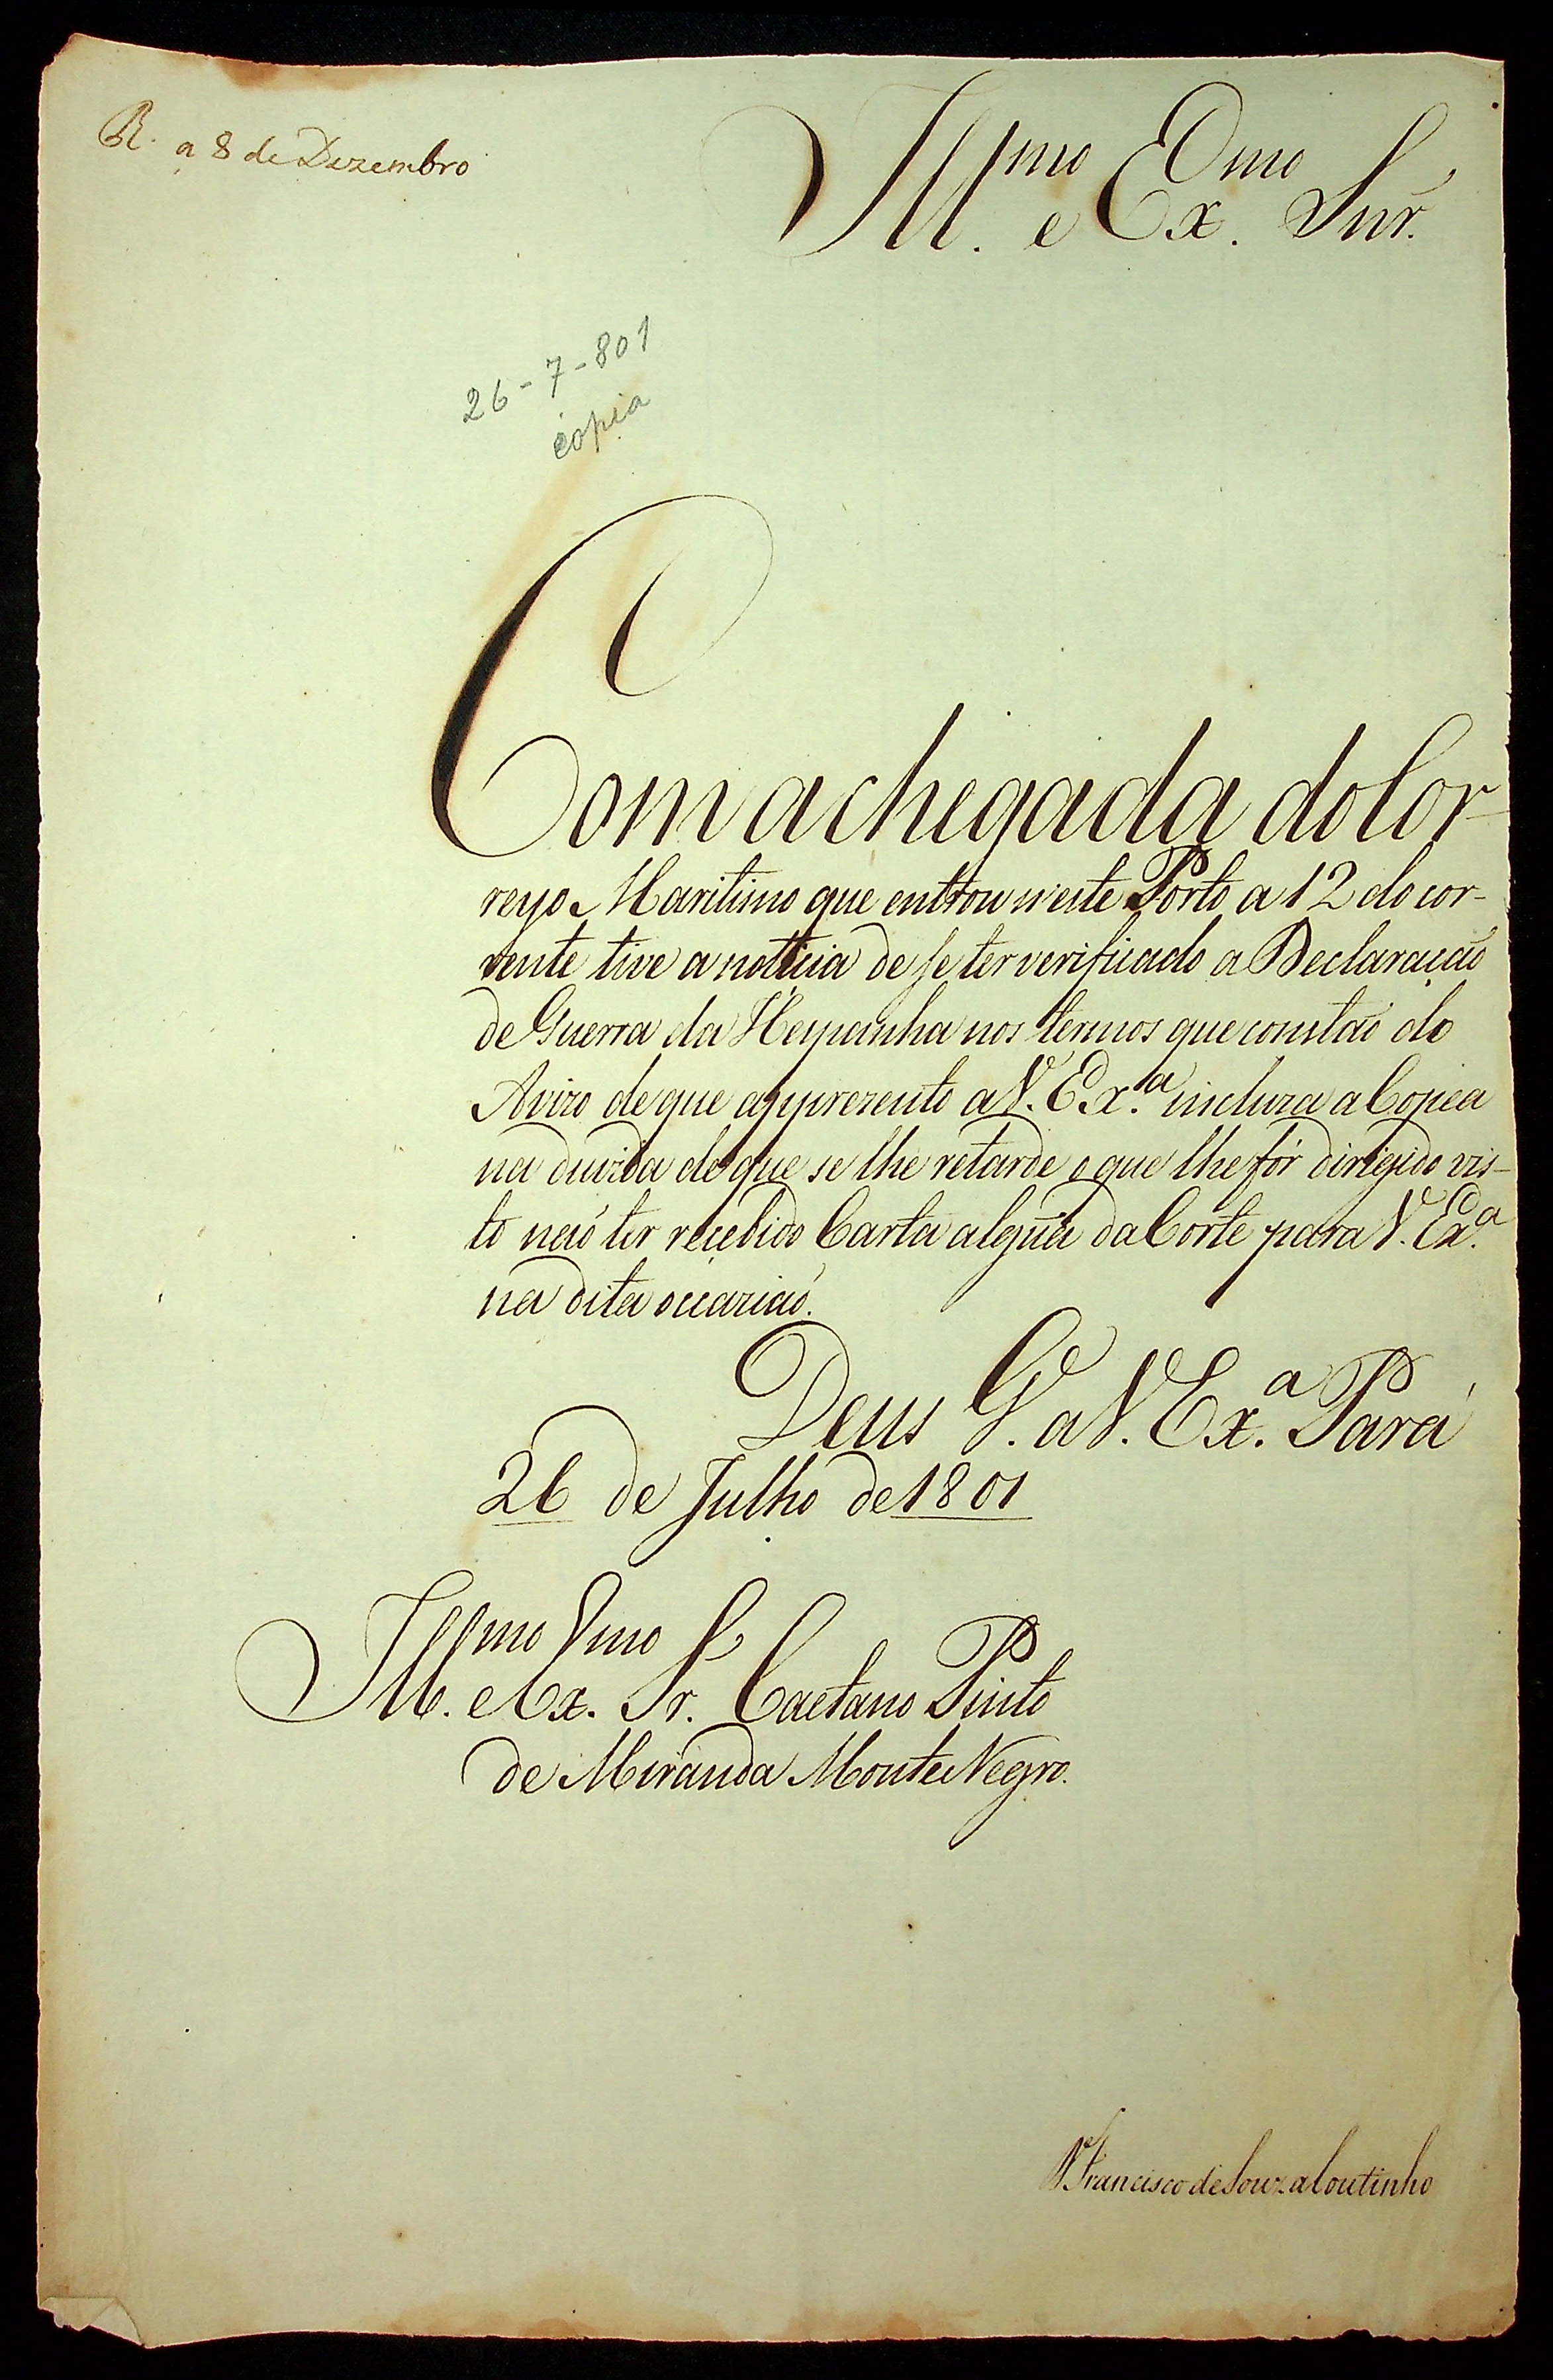 R. a 8 de Dezembro
Ill.mo e Ex.mo Snr.
26-7-801
cópia
Com a chegada do Cor-
reyo Maritimo que entrou n'este Porto a 12 do cor-
rente tive a notticia de se ter verificado a Declaração
de Guerra da Hespanha nos termos que constaõ do
Avizo de que apprezento a V. Ex.a incluza a Copea
na duvida de que se lhe retarde o que lhe fôr dirigido vis-
to naõ ter recebido Carta algũa da Corte para V. Ex.a
na dita occaziaõ.
Deus G. a V. Ex.a Pará
26 de Julho de 1801
Ill.mo e Ex.mo Sr. Caetano Pinto
de Miranda Monte Negro.
D. Francisco de Souza Coutinho